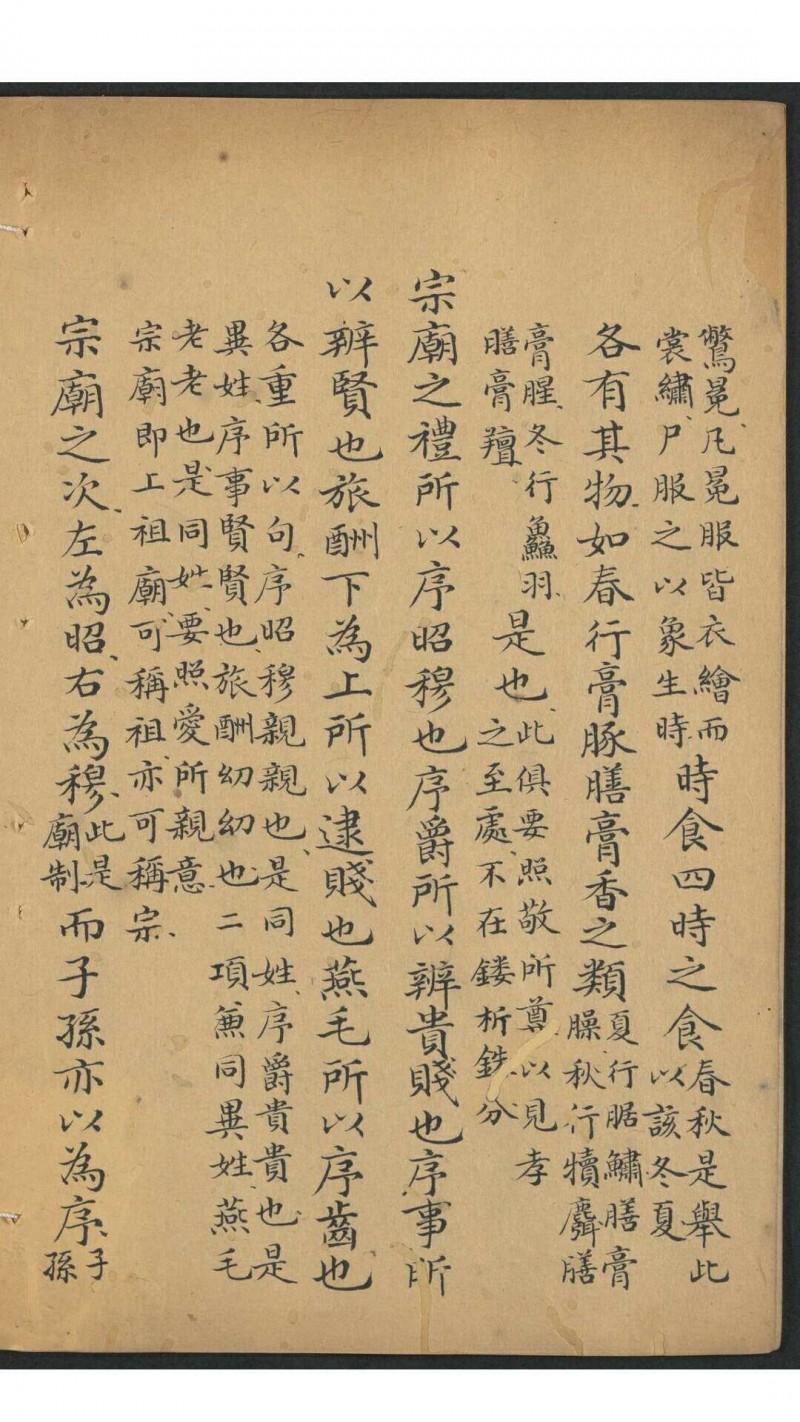 鷩冕、凡冕服皆衣繪而
裳繡、尸服之以象生時、
時食四時之食
春秋是舉此
以該冬夏
各有其物、如春行膏豚膳膏香之類
夏行腒鱐膳膏
臊秋行犢麛膳
膏腥、冬行鱻羽、
膳膏羶
是也、
此俱要照敬所尊、以見孝
之至處、不在鏤析銖分
宗廟之禮所以序昭穆也序爵所以辨貴賤也序事所
以辨賢也旅酬下為上所以逮賤也燕毛所以序齒也
各重所以句、序昭穆親親也、是同姓、序爵貴貴也是
異姓、序事賢賢也、旅酬幼幼也、二項兼同異姓、燕毛
老老也、是同姓、要照愛所親意、
宗廟即上祖廟、可稱祖亦可稱宗、
宗廟之次、左為昭、右為穆、
此是
廟制
而子孫亦以為序、
子
孫